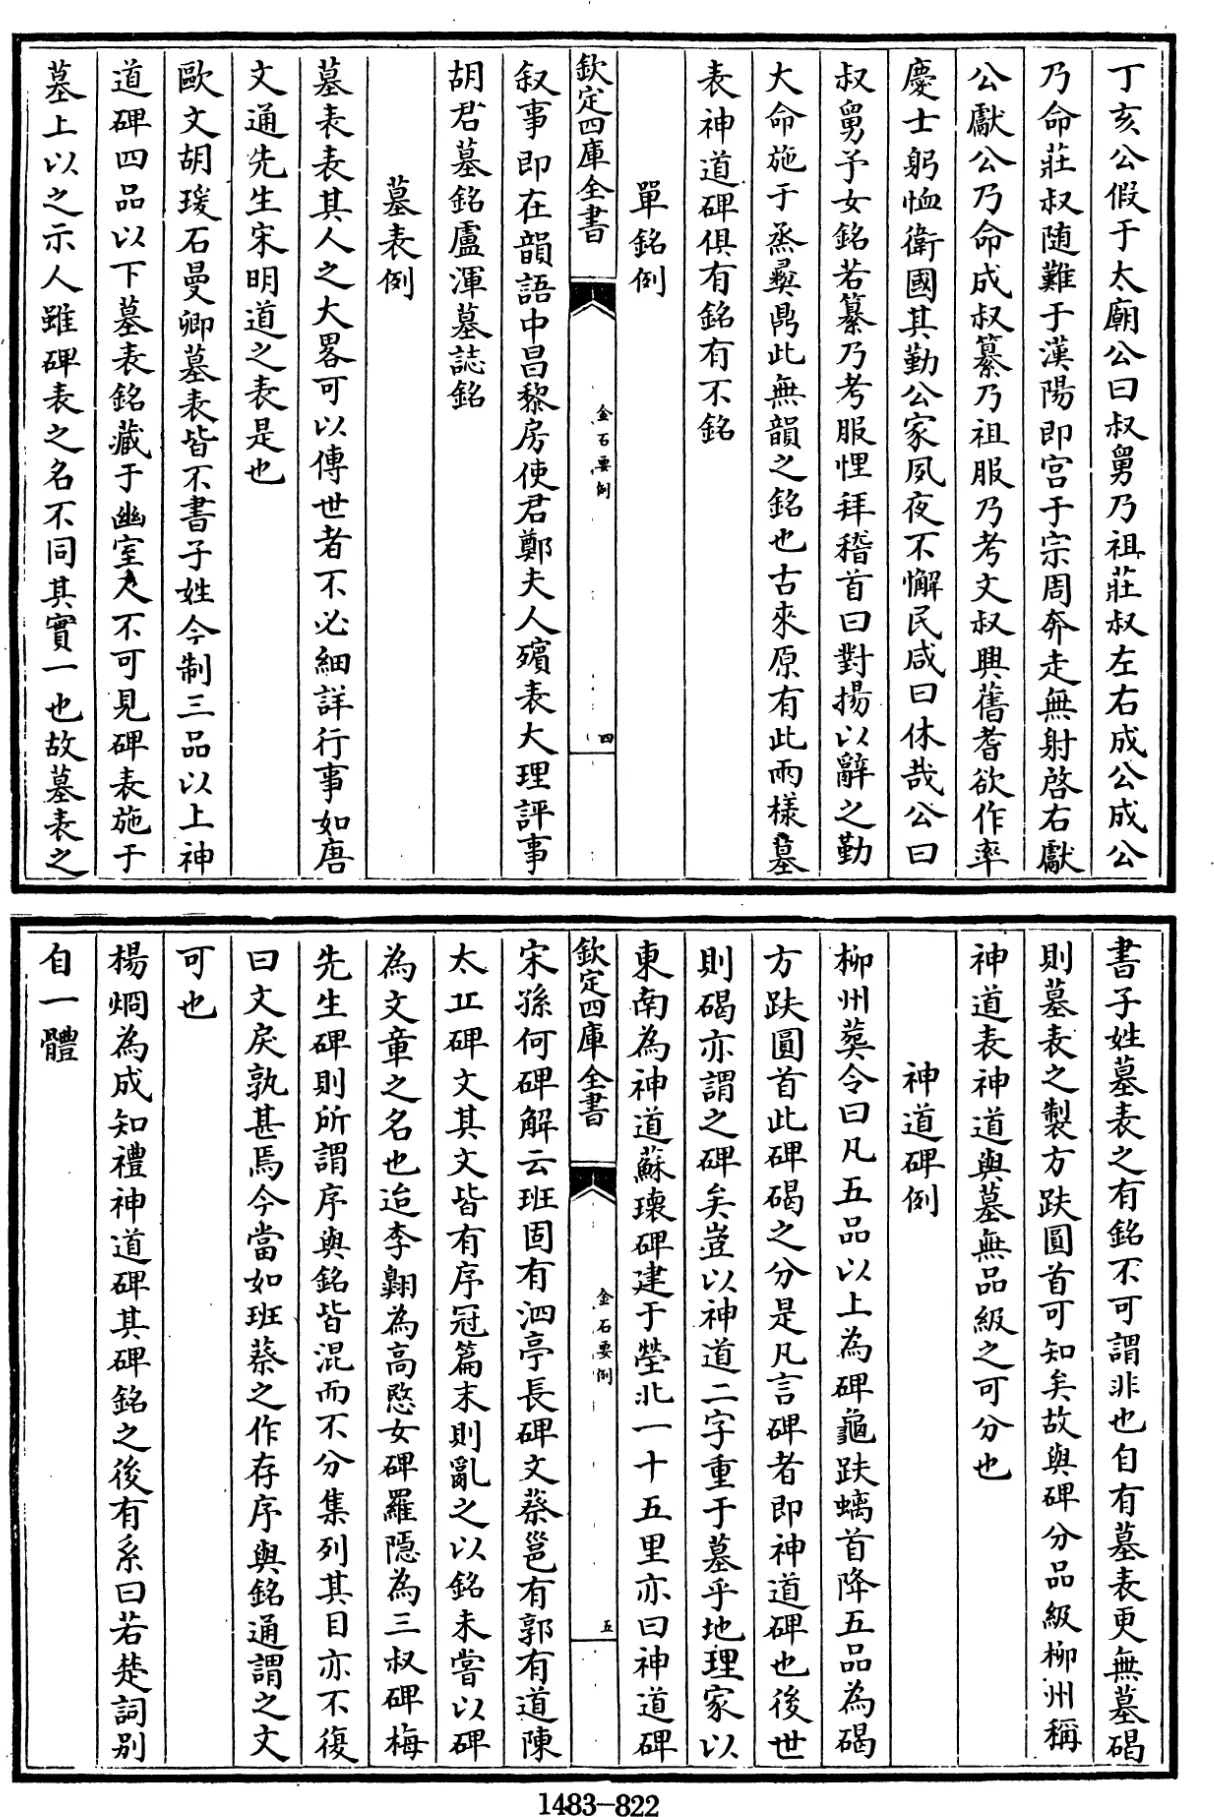 丁亥公假于太廟公曰叔舅乃祖莊叔左右成公成公
乃命莊叔随難于漢陽即宫于宗周奔走無射啓右獻
公獻公乃命成叔纂乃祖服乃考文叔興舊耆欲作率
慶士躬恤衛國其勤公家夙夜不懈民咸曰休哉公曰
叔舅予女銘若纂乃考服悝拜稽首曰對揚以辭之勤
大命施于烝彞鼎此無韻之銘也古來原有此兩樣墓
表神道碑俱有銘有不銘
單銘例
欽定四庫全書
金石要例
四
叙事即在韻語中昌黎房使君鄭夫人殯表大理評事
胡君墓銘盧渾墓誌銘
墓表例
墓表表其人之大畧可以傳世者不必細詳行事如唐
文通先生宋明道之表是也
歐文胡瑗石曼卿墓表皆不書子姓今制三品以上神
道碑四品以下墓表銘藏于幽室人不可見碑表施于
墓上以之示人雖碑表之名不同其實一也故墓表之
書子姓墓表之有銘不可謂非也自有墓表更無墓碣
則墓表之製方趺圓首可知矣故與碑分品級柳州稱
神道表神道與墓無品級之可分也
神道碑例
柳州葬令曰凡五品以上為碑龜趺螭首降五品為碣
方趺圓首此碑碣之分是凡言碑者即神道碑也後世
則碣亦謂之碑矣豈以神道二字重于墓乎地理家以
東南為神道蘇瓌碑建于塋北一十五里亦曰神道碑
欽定四庫全書
金石要例
五
宋孫何碑解云班固有泗亭長碑文蔡邕有郭有道陳
太丘碑文其文皆有序冠篇末則亂之以銘未嘗以碑
為文章之名也迨李翺為高愍女碑羅隱為三叔碑梅
先生碑則所謂序與銘皆混而不分集列其目亦不復
曰文戾孰甚焉今當如班蔡之作存序與銘通謂之文
可也
楊烱為成知禮神道碑其碑銘之後有系曰若楚詞别
自一體
1483-822